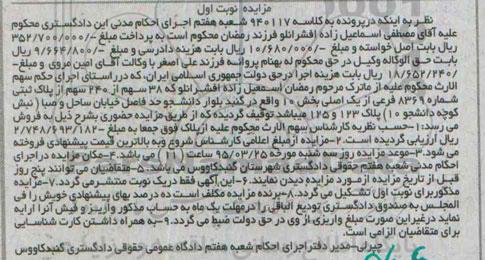 مزایده نوبت اول
نظر به اینکه درپرونده به کلاسه ۹۴۰۱۱۷ شعبه هفتم اجرای احکام مدنی این دادگستری محکوم
علیه آقای مصطفی اسماعیل زاده افشرانلو فرزند رمضان محکوم است به پرداخت مبلغ -/۳۵۲/۷۰۰/۰۰۰
ریال بابت اصل خواسته و مبلغ -/۱۰/۶۸۰/۰۰۰ ریال بابت هزینه دادرسی و مبلغ -/۹/۶۶۴/۸۰۰ ریال
بابت حق الوکاله وکیل در حق محکوم له بهنام پروانه فرزند علی اصغر با وکالت آقای امین مروی و مبلغ
۱۸/۶۵۲/۲۴۰/ ریال بابت هزینه اجرا درحق دولت جمهوری اسلامی ایران، که در راستای اجرای حکم سهم
الارث محکوم علیه از ماترک مرحوم رمضان اسمعیل زاده افشرانلو که ۳۸ سهم از ۲۴۰ سهم از پلاک ثبتی
شماره ۸۳۶۹ فرعی از یک اصلی بخش ۱۰ واقع در گنبد بلوار دانشجو حد فاصل خیابان ساحل و صبا (نبش
کوچه دانشجو ۱۰) پلاک ۱۲۳ و ۱۲۵ میباشد توقیف گردیده که از طریق مزایده حضوری بشرح ذیل به فروش
می رسد:۱-حسب نظریه کارشناس سهم الارث محکوم علیه ازپلاک فوق جمعا به مبلغ -/۲/۷۴۸/۶۹۳/۱۸۲
ریال ارزیابی گردیده است.۲-مزایده ازمبلغ اعلامی کارشناس شروع وبه بالاترین قیمت پیشنهادی فروخته
می شود.۳-موعد مزایده روز سه شنبه مورخه ۹۵/۰۳/۲۵ ساعت(۱۰) می باشد.۴-مکان مزایده دراجرای
احکام مدنی شعبه هفتم حقوقی دادگستری شهرستان گنبدکاووس می باشد.۵-متقاضیان می توانند پنج روز
قبل از تاریخ مزایده ازمورد مزایده دیدن نمایند.۶-این آگهی فقط دریک نوبت منتشرمی گردد.۷-مزایده
مذکوربرای نوبت اول تشکیل می گردد.۸-برنده مزایده مکلف است ده درصد بهای پیشنهادی خویش را فی
المجلس به صندوق دادگستری تودیع الباقی را درمهلت یک ماه به حساب مذکور واریز و فیش آنرا ارایه
نماید درغیراین صورت مبلغ واریزی از وی در حق دولت ضبط می گردد.۹-به همراه داشتن کارت شناسایی
برای متقاضیان الزامی است.
جبرلی-مدیر دفتراجرای احکام شعبه هفتم دادگاه عمومی حقوقی دادگستری گنبدکاووس